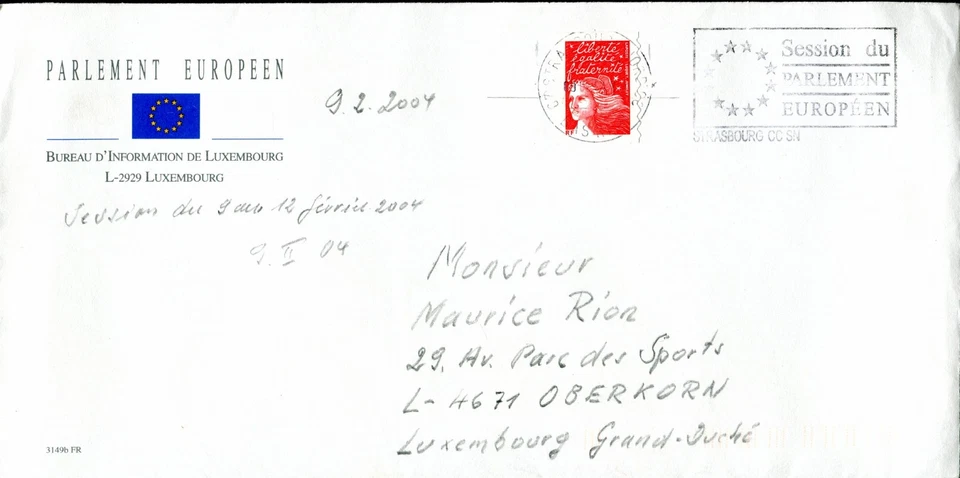 PARLEMENT EUROPEEN
BUREAU D'INFORMATION DE LUXEMBOURG
L-2929 LUXEMBOURG
9.2.2004
liberté
égalité
fraternité
RF
Session du
PARLEMENT
EUROPÉEN
STRASBOURG CC SN
Session du 9 au 12 février 2004
9. II 04
Monsieur
Maurice Rion
29. Av. Parc des Sports
L-4671 OBERKORN
Luxembourg Grand-Duché
3149b FR